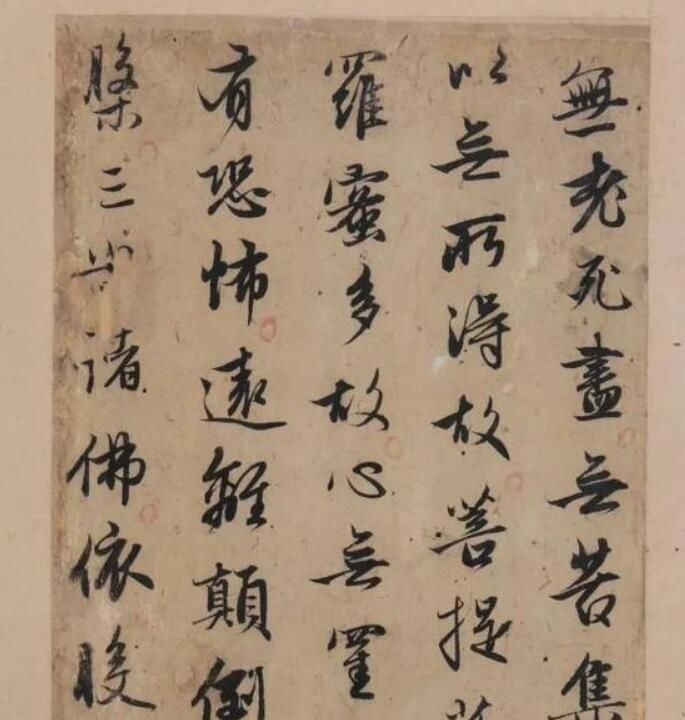 無老死盡无苦集
以无所得故菩提
羅蜜多故心无罣
有恐怖遠離顛倒
槃三世諸佛依般